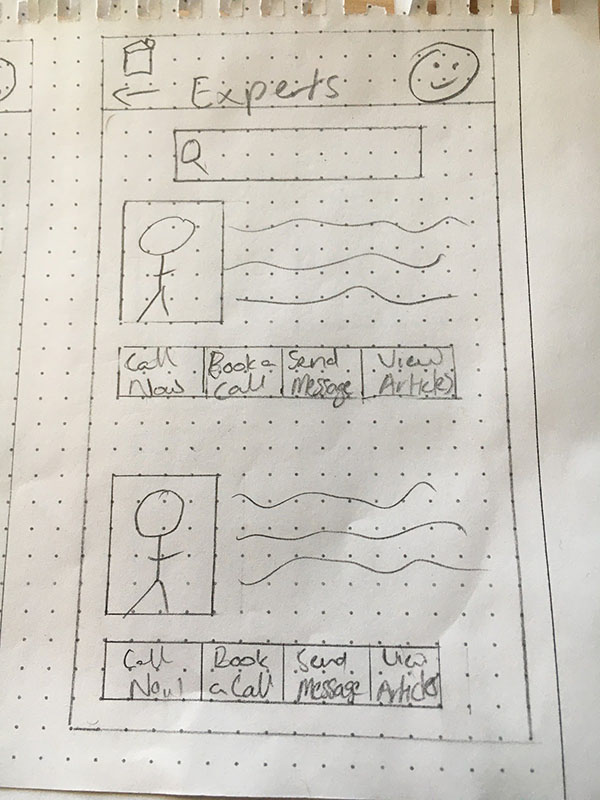 Experts
Call Now
Book a Call
Send Message
View Articles
Call Now!
Book a Call
Send Message
View Articles